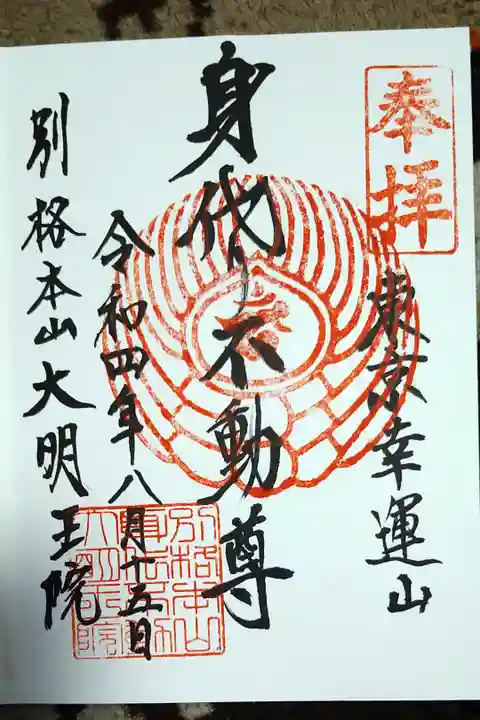 奉拝
東京幸運山
身代り不動尊
令和四年八月十五日
別格本山大明王院